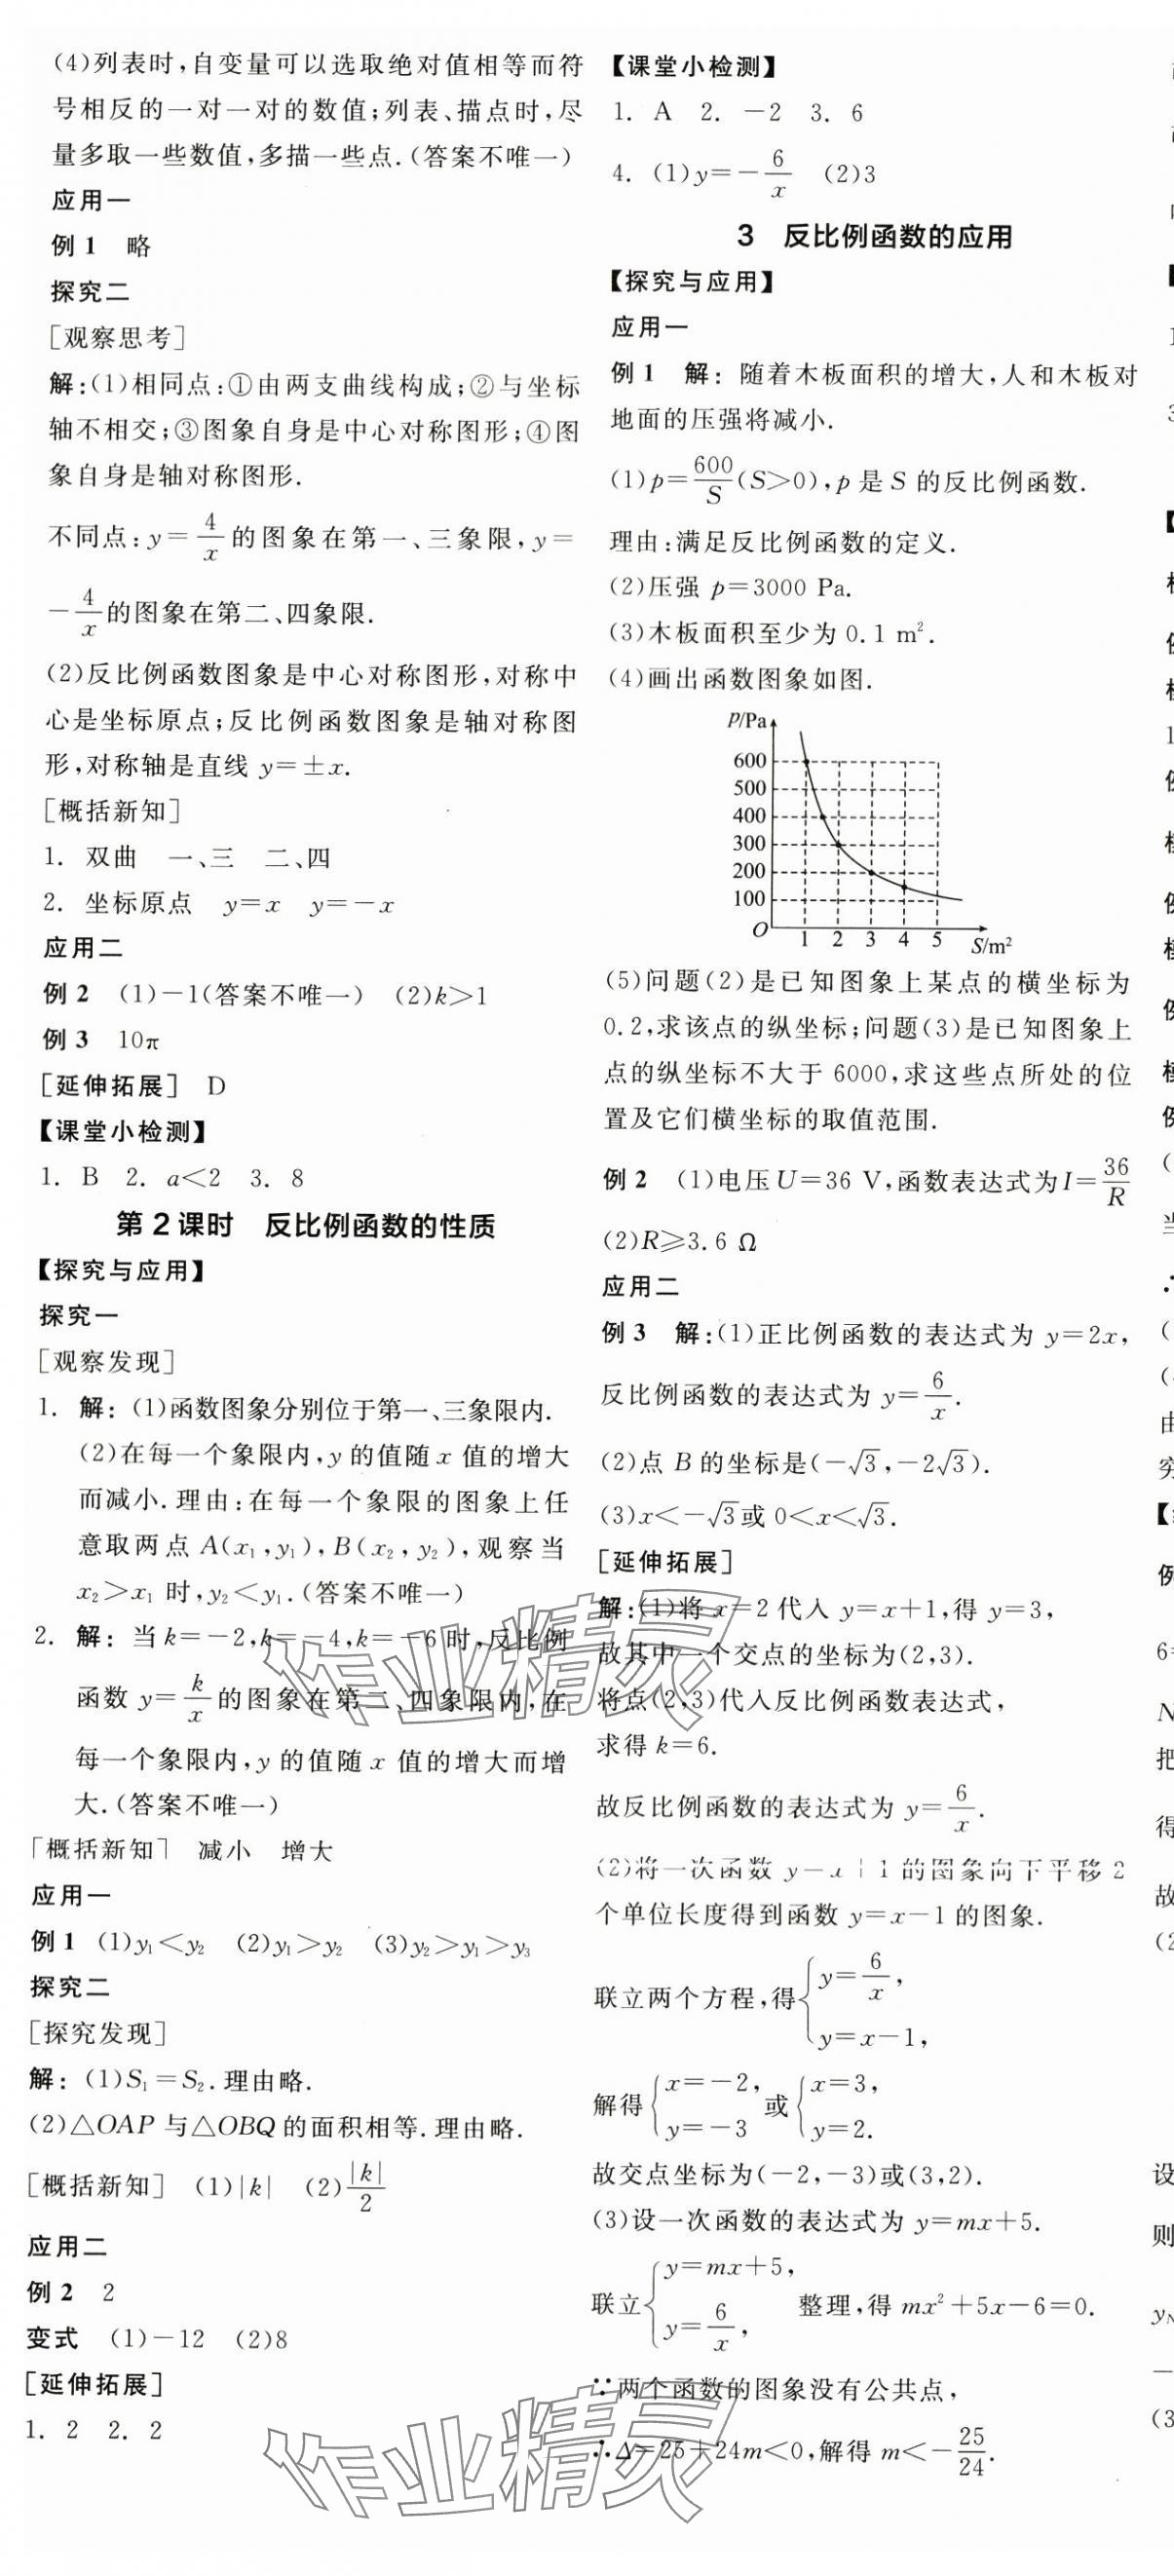 (4)列表时,自变量可以选取绝对值相等而符
号相反的一对一对的数值;列表、描点时,尽
量多取一些数值,多描一些点.(答案不唯一)
应用一
例1 略
探究二
[观察思考]
解:(1)相同点:①由两支曲线构成;②与坐标
轴不相交;③图象自身是中心对称图形;④图
象自身是轴对称图形.
不同点:y=4/x的图象在第一、三象限,y=
-4/x的图象在第二、四象限.
(2)反比例函数图象是中心对称图形,对称中
心是坐标原点;反比例函数图象是轴对称图
形,对称轴是直线 y=±x.
[概括新知]
1. 双曲 一、三 二、四
2. 坐标原点 y=x y=-x
应用二
例2 (1)-1(答案不唯一) (2)k>1
例3 10π
[延伸拓展] D
【课堂小检测】
1. B 2. a<2 3. 8
第2课时 反比例函数的性质
【探究与应用】
探究一
[观察发现]
1. 解:(1)函数图象分别位于第一、三象限内.
(2)在每一个象限内,y的值随x值的增大
而减小.理由:在每一个象限的图象上任
意取两点A(x₁,y₁),B(x₂,y₂),观察当
x₂>x₁时,y₂<y₁.(答案不唯一)
2. 解:当k=-2,k=-4,k=-6时,反比例
函数 y=k/x的图象在第二、四象限内,在
每一个象限内,y的值随x值的增大而增
大.(答案不唯一)
[概括新知] 减小 增大
应用一
例1 (1)y₁<y₂ (2)y₁>y₂ (3)y₂>y₁>y₃
探究二
[探究发现]
解:(1)S₁=S₂.理由略.
(2)△OAP与△OBQ的面积相等.理由略.
[概括新知] (1)|k| (2)|k|/2
应用二
例2 2
变式 (1)-12 (2)8
[延伸拓展]
1. 2 2. 2
【课堂小检测】
1. A 2. -2 3. 6
4. (1)y=-6/x (2)3
3 反比例函数的应用
【探究与应用】
应用一
例1 解:随着木板面积的增大,人和木板对
地面的压强将减小.
(1)p=600/S(S>0),p是S的反比例函数.
理由:满足反比例函数的定义.
(2)压强 p=3000 Pa.
(3)木板面积至少为0.1 m².
(4)画出函数图象如图.
p/Pa
600
500
400
300
200
100
O 1 2 3 4 5 S/m²
(5)问题(2)是已知图象上某点的横坐标为
0.2,求该点的纵坐标;问题(3)是已知图象上
点的纵坐标不大于6000,求这些点所处的位
置及它们横坐标的取值范围.
例2 (1)电压U=36 V,函数表达式为I=36/R
(2)R≥3.6 Ω
应用二
例3 解:(1)正比例函数的表达式为 y=2x,
反比例函数的表达式为 y=6/x.
(2)点B的坐标是(-√3,-2√3).
(3)x<-√3或0<x<√3.
[延伸拓展]
解:(1)将x=2代入y=x+1,得y=3,
故其中一个交点的坐标为(2,3).
将点(2,3)代入反比例函数表达式,
求得k=6.
故反比例函数的表达式为 y=6/x.
(2)将一次函数 y=x+1的图象向下平移2
个单位长度得到函数 y=x-1的图象.
联立两个方程,得{y=6/x,
y=x-1,
解得{x=-2, y=-3 或{x=3, y=2.
故交点坐标为(-2,-3)或(3,2).
(3)设一次函数的表达式为 y=mx+5.
联立{y=mx+5, y=6/x, 整理,得mx²+5x-6=0.
∵两个函数的图象没有公共点,
∴Δ=25+24m<0,解得m<-25/24.
作业精灵
作业精灵